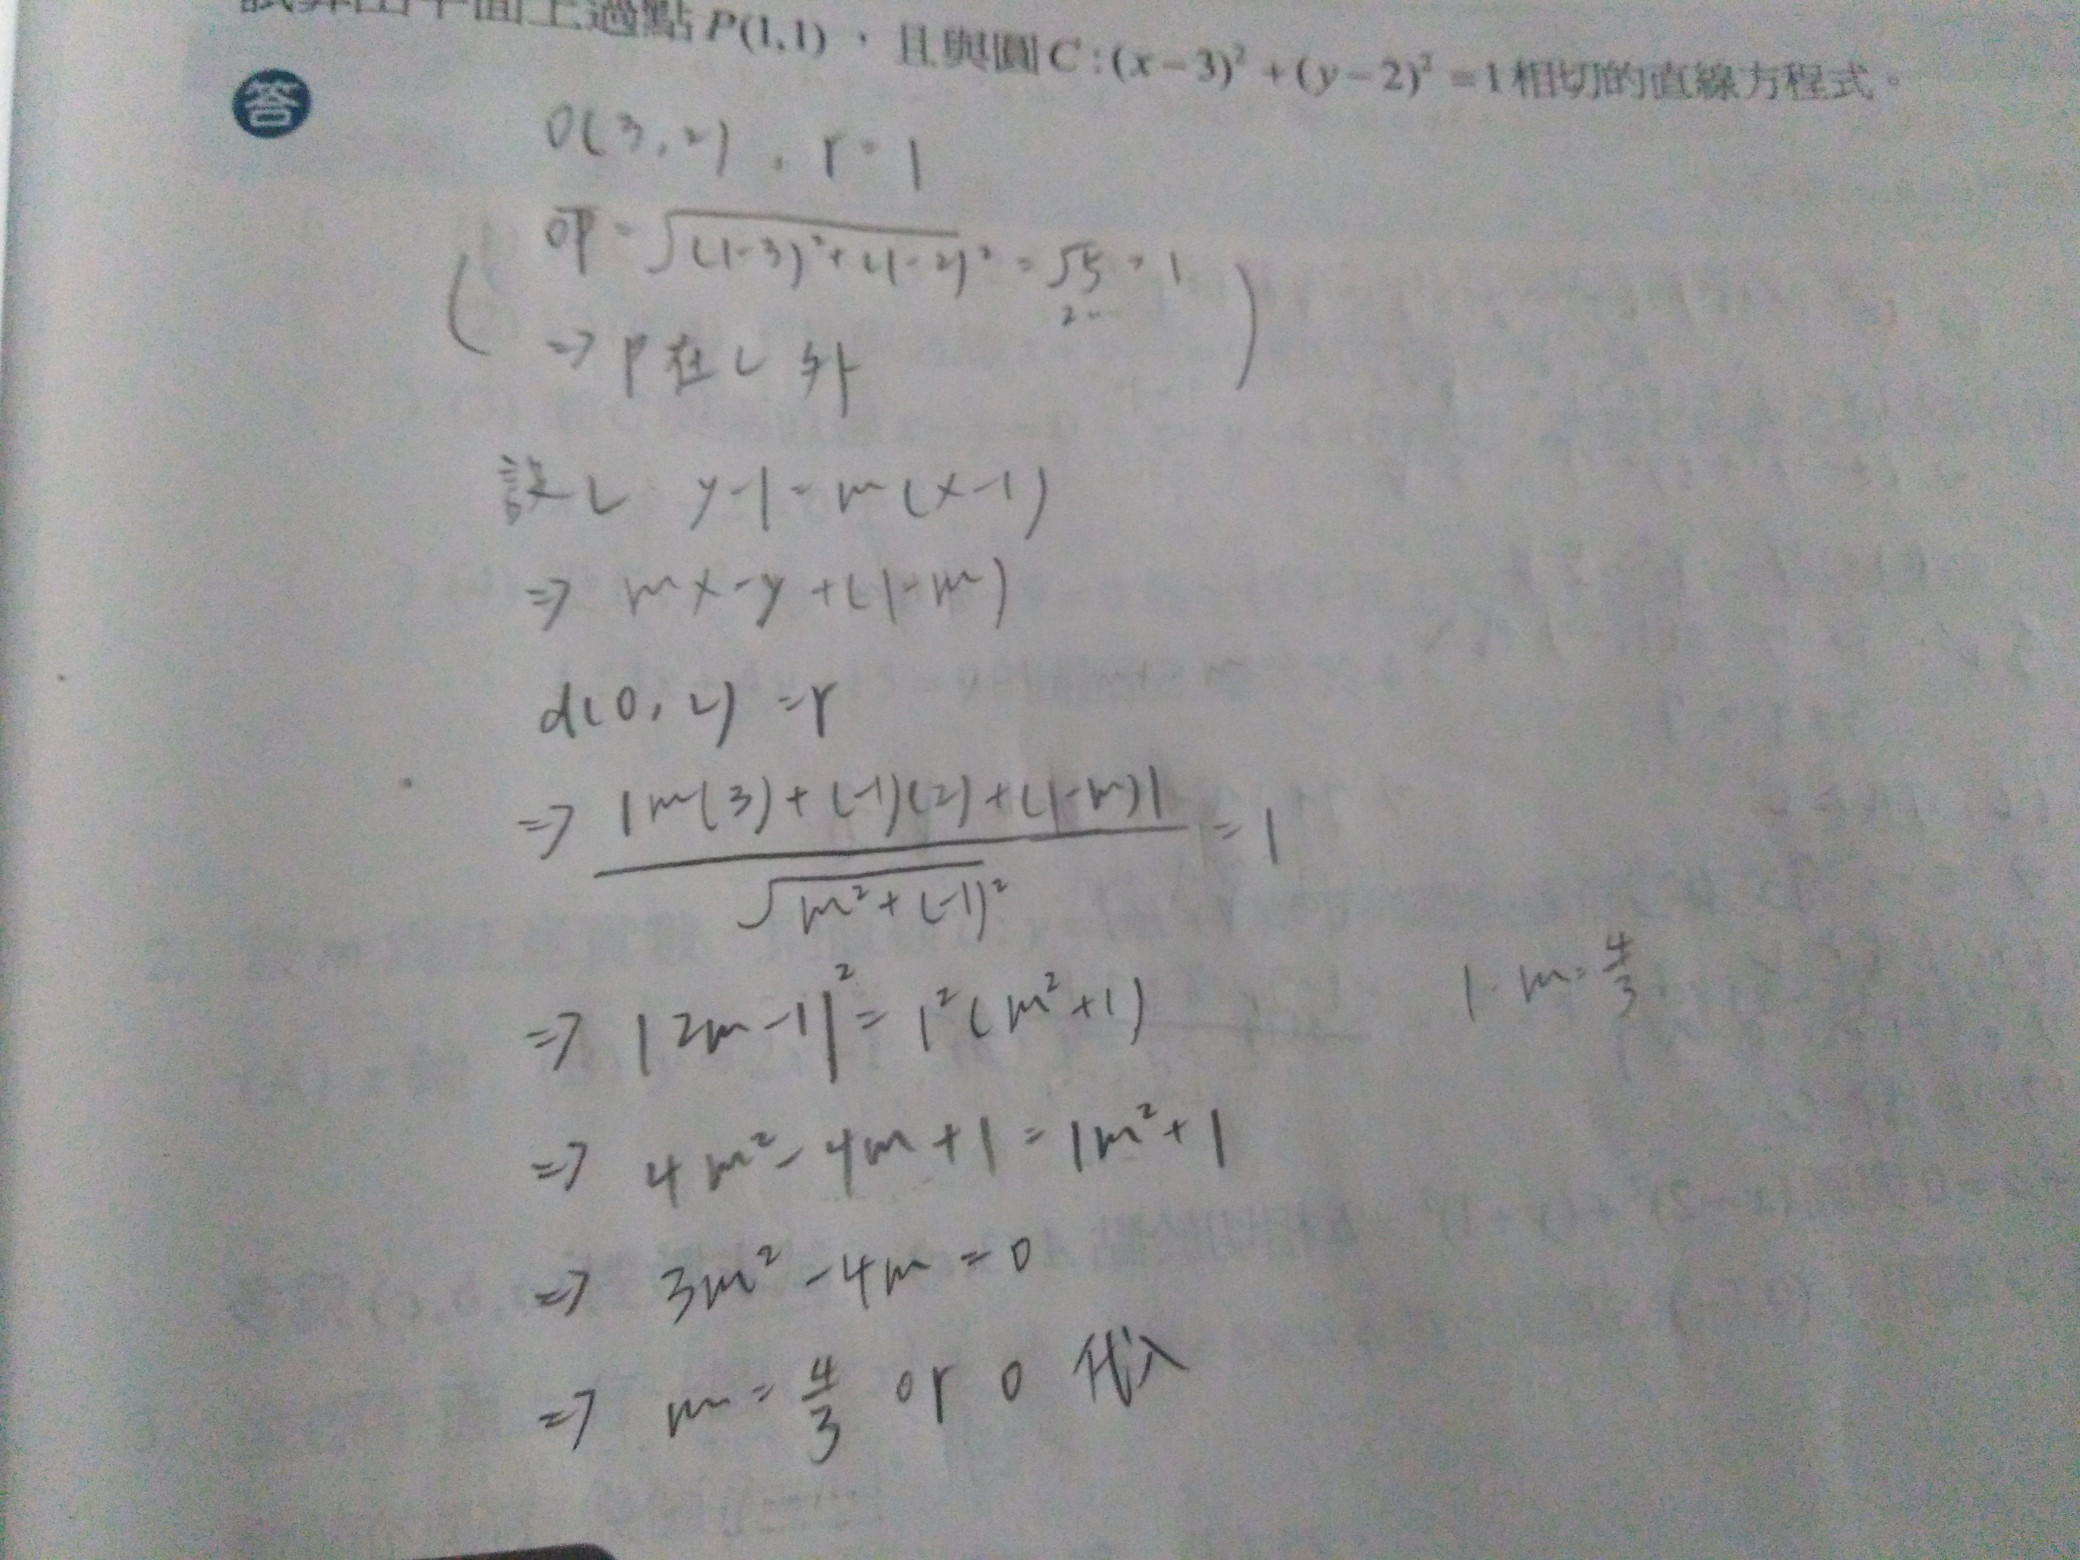 試算出平面上過點P(1,1),且與圓C:(x-3)²+(y-2)²=1相切的直線方程式。
答
O(3,2), r=1
OP=√(1-3)²+(1-2)²=√5>1
2...
⇒P在L外
設L y-1=m(x-1)
⇒ mx-y+(1-m)
d(O,L)=r
⇒ |m(3)+(-1)(2)+(1-m)| / √m²+(-1)² =1
⇒ |2m-1|²=1²(m²+1)
1. m=4/3
⇒ 4m²-4m+1=1m²+1
⇒ 3m²-4m=0
⇒ m=4/3 or 0 代入